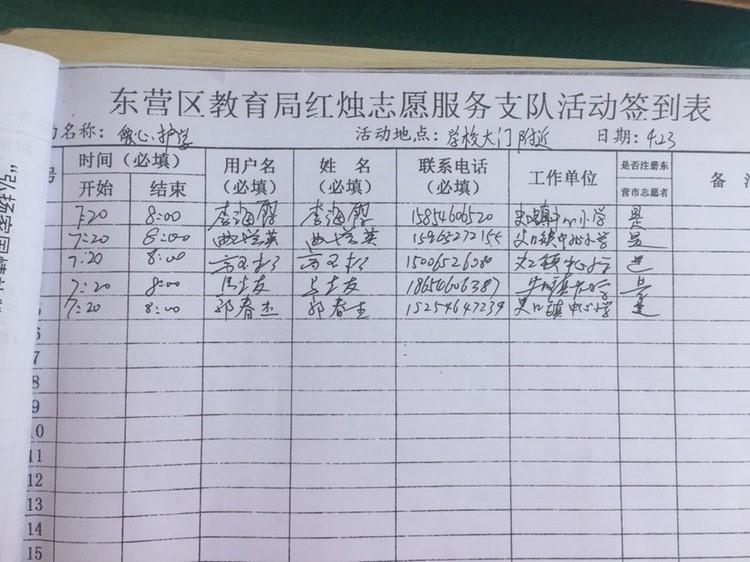 东营区教育局红烛志愿服务支队活动签到表
动名称：暖心护学 活动地点：学校大门附近 日期：4.23
号 时间（必填） 用户名（必填） 姓 名（必填） 联系电话（必填） 工作单位 是否注册东营市志愿者 备
开始 结束
7:20 8:00 李海 李海 15854606520 史口镇中心小学 是
7:20 8:00 英 英 15965272155 史口镇中心小学 是
7:20 8:00 15006526080 史口镇中心小学 是
7:20 8:00 友 友 18654606387 中心小学 是
7:20 8:00 郭春杰 郭春杰 15254647239 史口镇中心小学 是
6
7
8
9
10
11
12
13
14
15
"弘扬家国情